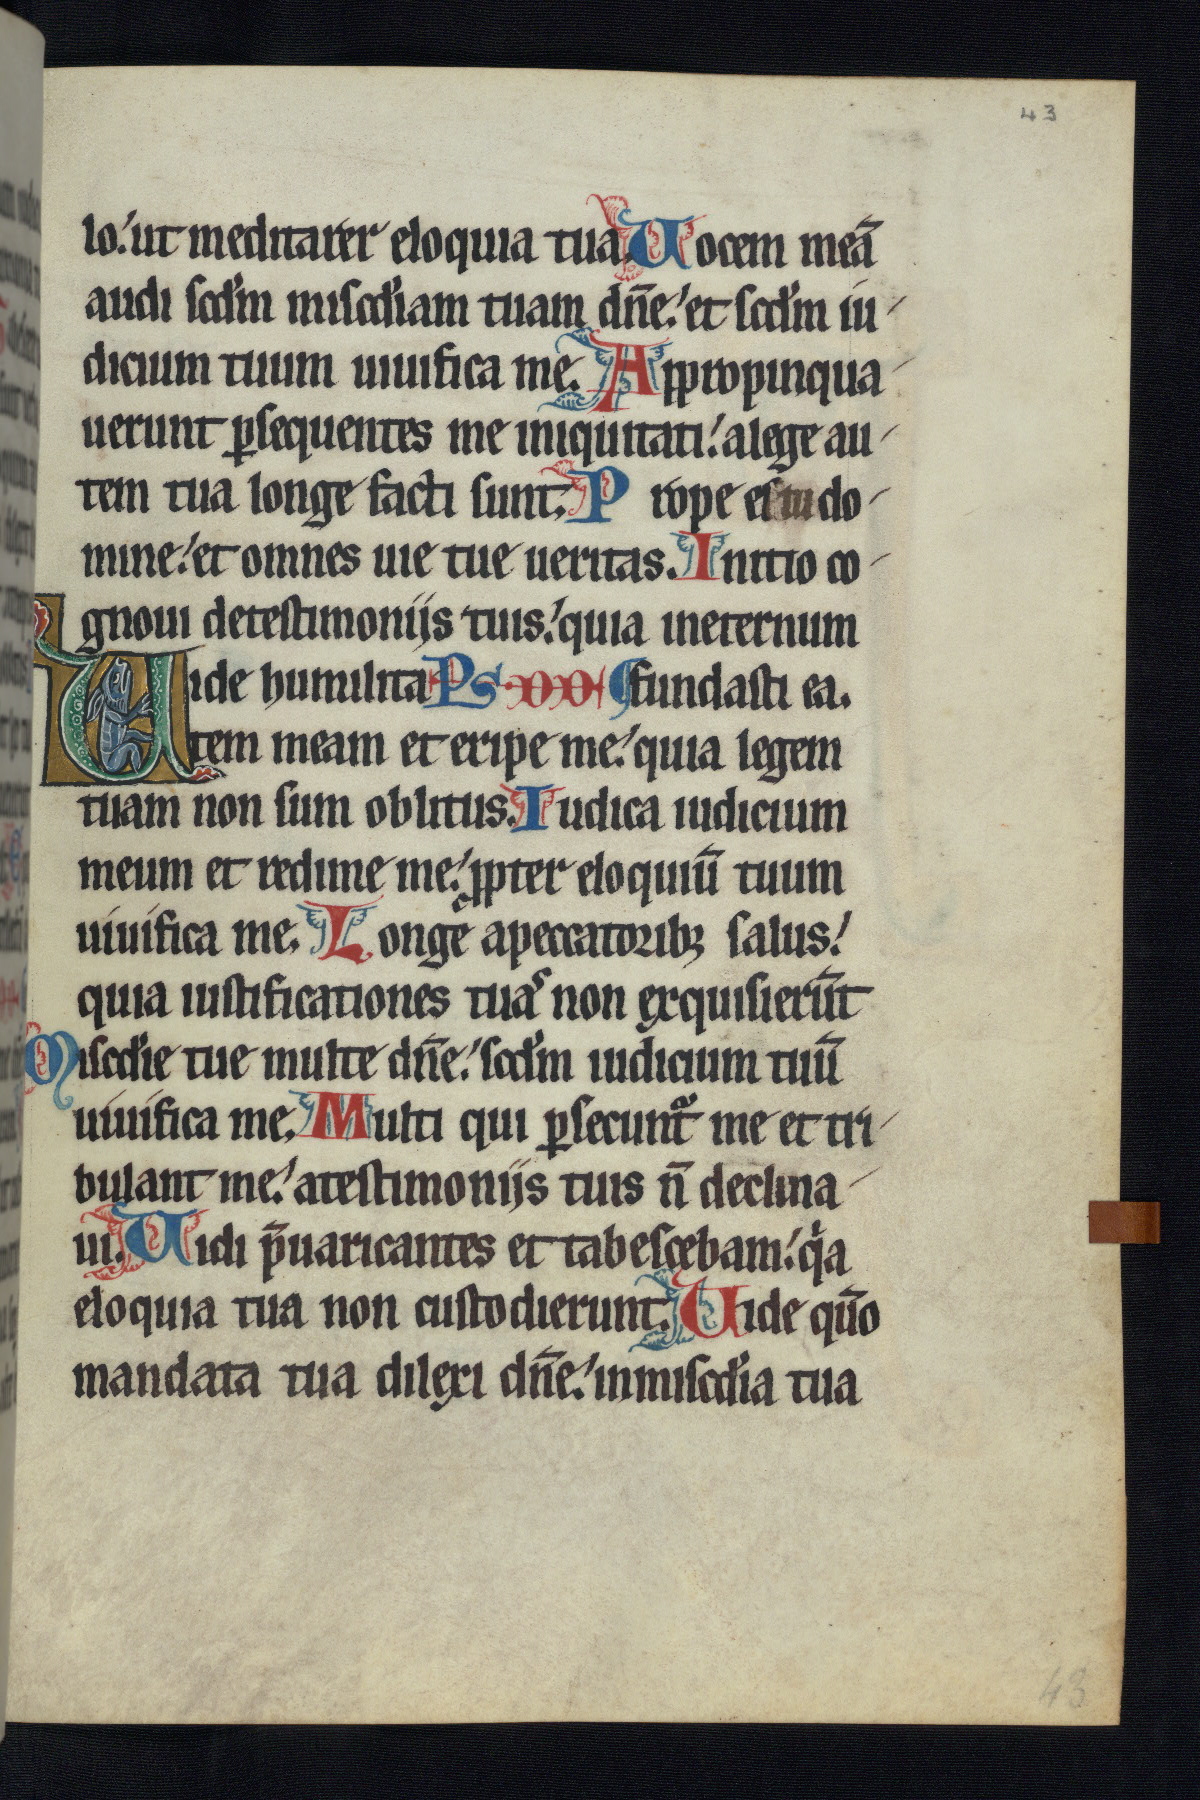 43
lo.' ut meditarer eloquia tua. Uocem meā
audi scd'm miscd'iam tuam dn̄e.' et scd'm iu-
dicium tuum uiuifica me. Appropinqua-
uerunt ꝑsequentes me iniquitati.' alege au-
tem tua longe facti sunt. Prope es tu do-
mine.' et omnes uie tue ueritas. Initio co-
gnoui detestimoniis tuis.' quia ineternum
Uide humilita Ps. fundasti ea.
tem meam et eripe me.' quia legem
tuam non sum oblitus. Iudica iudicium
meum et redime me.' ꝓpter eloquiū tuum
uiuifica me. Longe apeccatoribꝫ salus.'
quia iustificationes tuas non exquisierūt
Miscd'ie tue multe dn̄e.' scd'm iudicium tuū
uiuifica me. Multi qui ꝑsecunt᷑ me et tri-
bulant me.' atestimoniis tuis n̄ declina-
ui. Uidi p̄uaricantes et tabescebam.' qͥa
eloquia tua non custodierunt. Uide qm̄o
mandata tua dilexi dn̄e.' inmiscd'ia tua
43